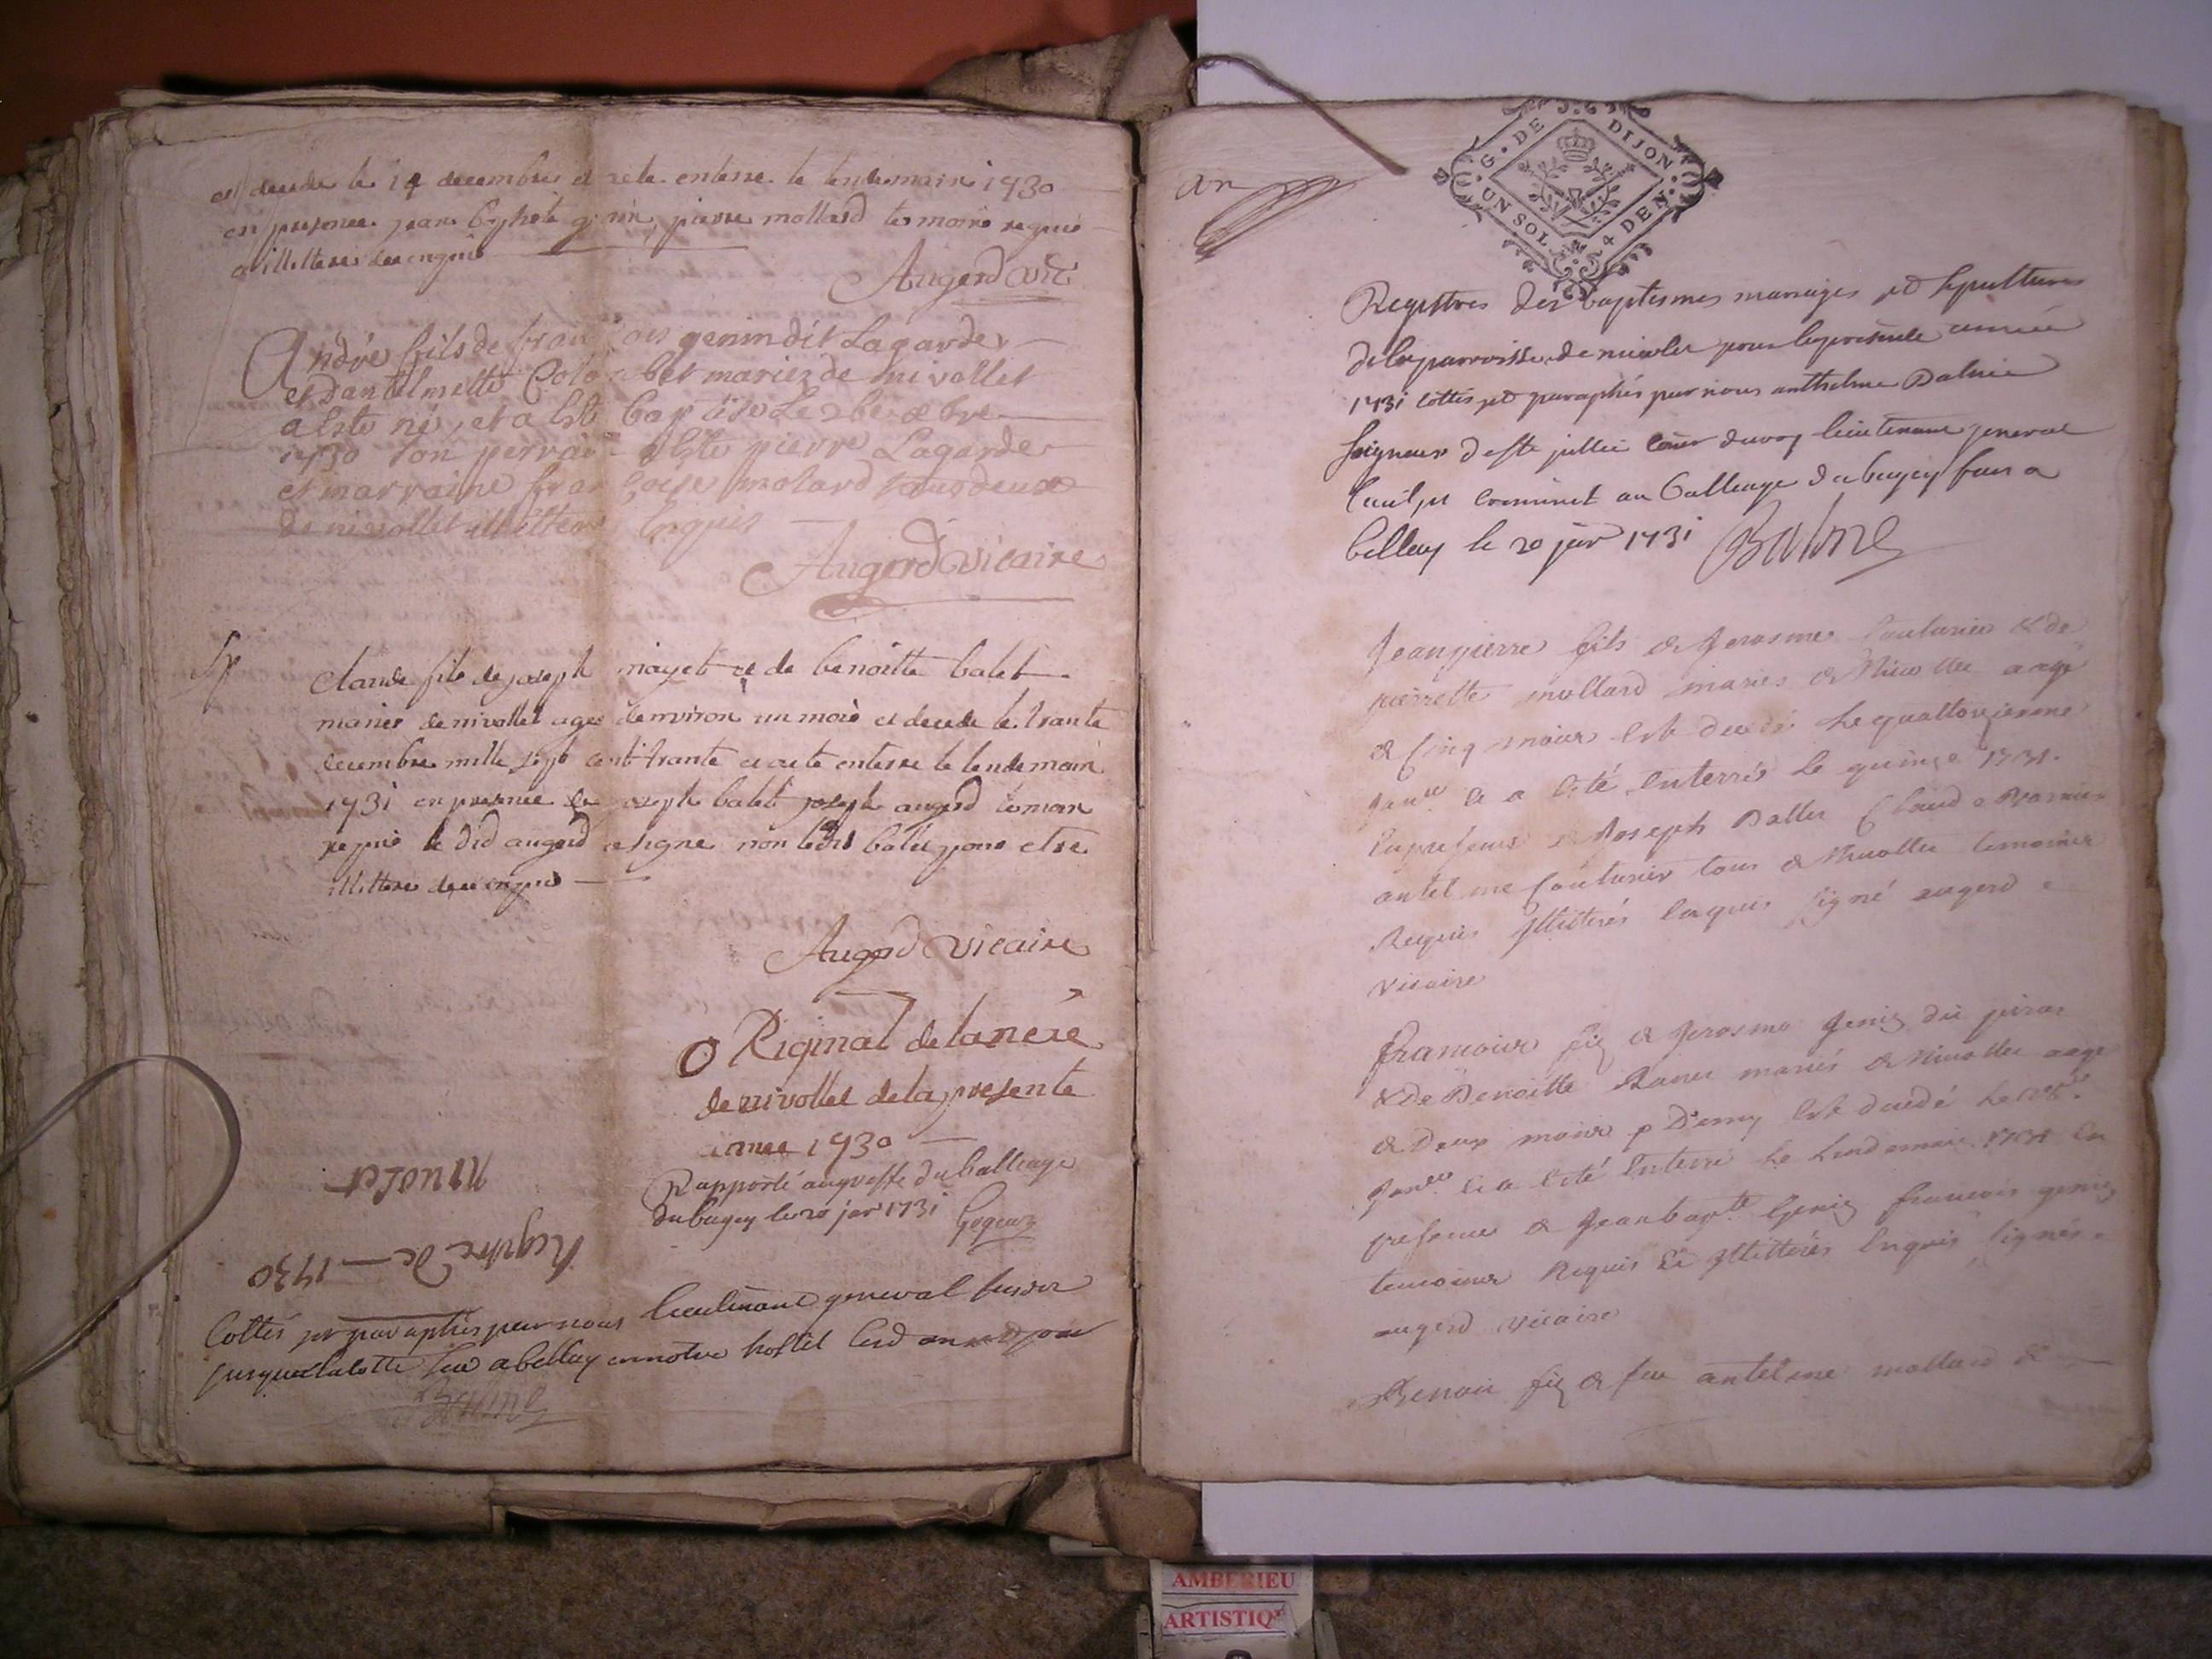 est decede le 14 decembre et a ete enterre le lendemain 1730
en presence jean genin, pierre mollard temoins requis
illitteres de ce enquis
Augerd vic
André fils de francois genin dit Lagarde
et dantelmette Colombet mariez de nivollet
a este né, et a esté baptisé Le 2 be
1730 son perrain a este pierre Lagarde
et marraine francoise molard tous deux
de nivollet illitteres Enquis
Augerd vicaire
claude fils de joseph mayet et de benoitte balet
mariés de nivollet agé denviron un mois et decede le trante
decembre mille sept cent trante et a ete enterre le lendemain
1731 en presence de joseph balet joseph augerd temoin
requis le did augerd a signe non ledit balet pour etre
illittere de ce enquis
Augerd vicaire
ORiginal de lanexe
de nivollet de la presente
annee 1730
Rapporté au greffe du balliage
du bugey le 20 janr 1731
nivolet
Registre de 1730
Cottés et paraphés par nous lieutenant general
a bellay en notre hostel
Balme
G. DE DIJON
UN SOL 4 DEN.
Registres des baptesmes mariages et sepultures
de la parroisse de nivolet pour la presente année
1731 cottés et paraphés par nous anthelme Balme
seigneur de ste jullie coner du roy lieutenant general
civil et criminel au balliage du bugey fait a
bellay le 20 janr 1731 Balme
Jeanpierre fils de Jerosme Couturier & de
pierrette mollard mariés de Nivollet aagé
de cinq mois est decedé le quattorzieme
Janer et a eté enterré le quinze 1731.
en presence de Joseph Ballet Claude
antelme Couturier tous de Nivollet temoins
Requis Illitterés enquis signé augerd
vicaire
francois fiz de Jerosme Genin dit
& de Benoitte mariés de Nivollet aagé
de Deux mois & Demy est decedé le
Janer et a eté enterré le lendemain 1731 en
presence de Jeanbapte Genin francois genin
temoins Requis et Illitterés enquis signés
augerd vicaire
Benoit fiz de feu antelme mollard &
AMBERIEU
ARTISTIQ